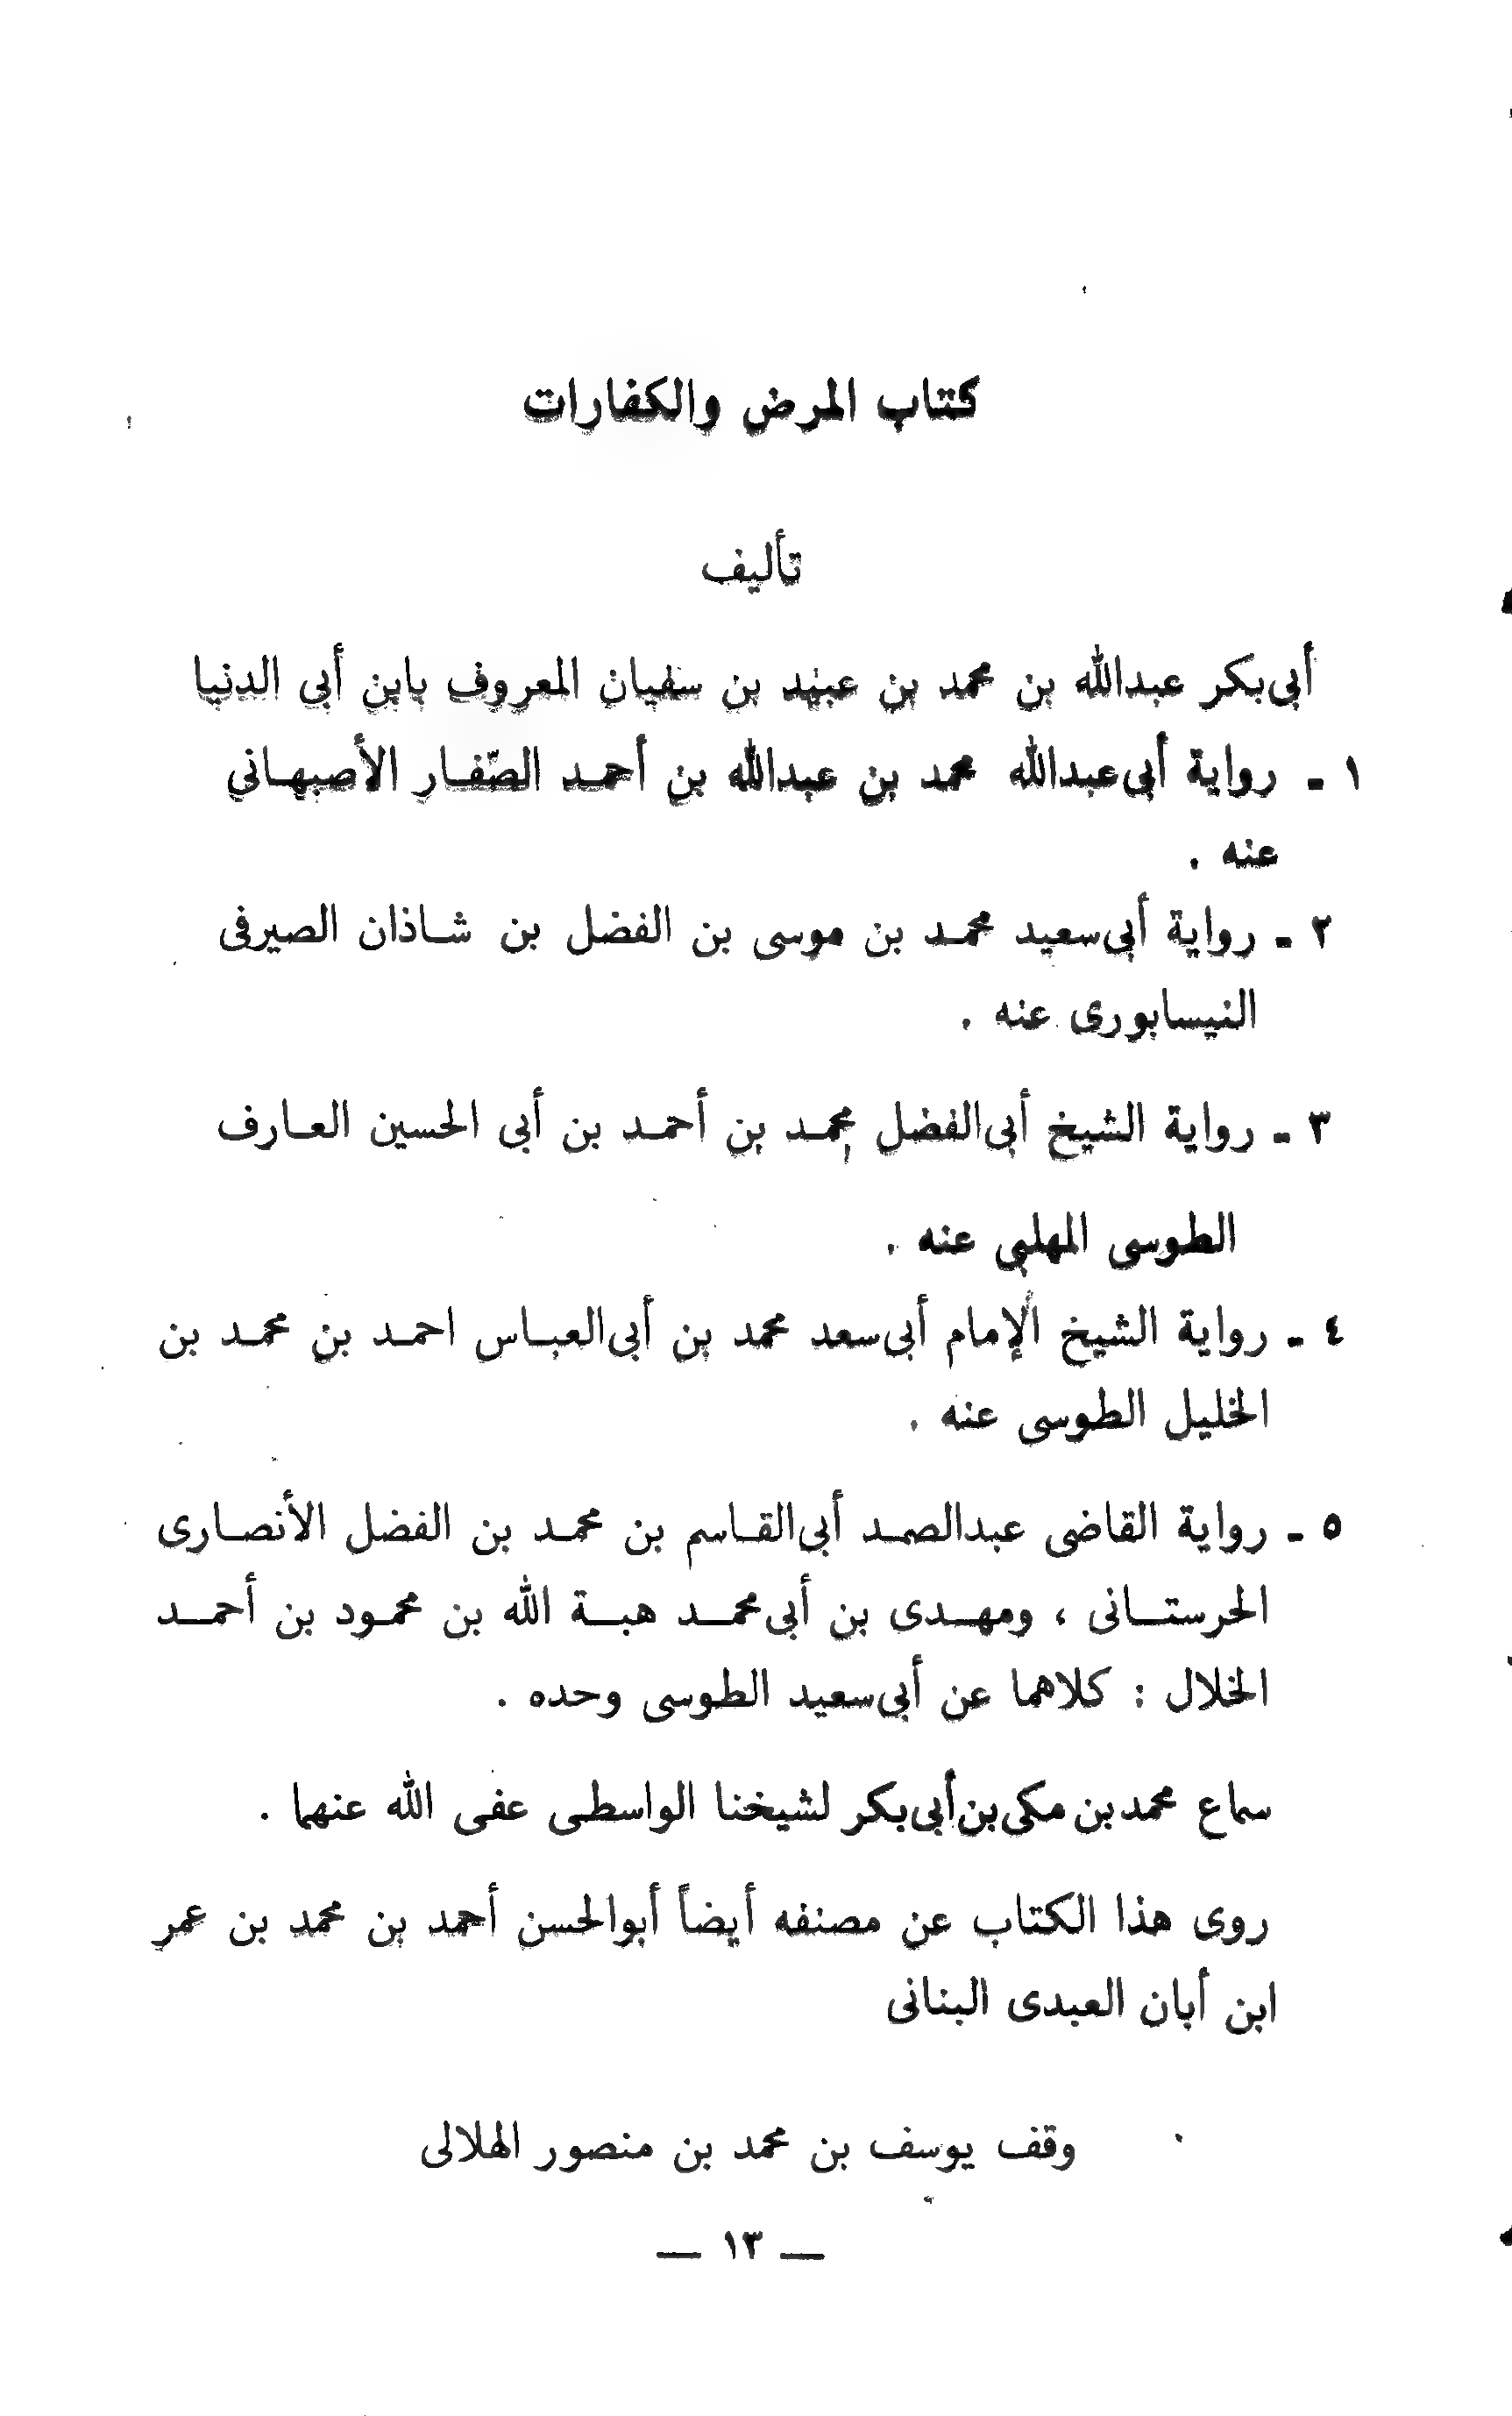 كتاب المرض والكفارات
تأليف
أبى‌بكر عبدالله بن محمد بن عبيد بن سفيان المعروف بابن أبي الدنيا
١ - رواية أبى‌عبدالله محمد بن عبدالله بن أحمد الصّفار الأصبهاني
عنه .
٢ - رواية أبى‌سعيد محمد بن موسى بن الفضل بن شاذان الصيرفى
النيسابورى عنه .
٣ - رواية الشيخ أبى‌الفضل محمد بن أحمد بن أبى الحسين العارف
الطوسى المهلبى عنه .
٤ - رواية الشيخ الإمام أبى‌سعد محمد بن أبى‌العباس احمد بن محمد بن
الخليل الطوسى عنه .
٥ - رواية القاضى عبدالصمد أبى‌القاسم بن محمد بن الفضل الأنصارى
الحرستانى ، ومهدى بن أبى‌محمد هبة الله بن محمود بن أحمد
الخلال : كلاهما عن أبى‌سعيد الطوسى وحده .
سماع محمد بن مكى بن أبى‌بكر لشيخنا الواسطى عفى الله عنهما .
روى هذا الكتاب عن مصنفه أيضاً أبوالحسن أحمد بن محمد بن عمر
ابن أبان العبدى البنانى
وقف يوسف بن محمد بن منصور الهلالى
— ١٣ —